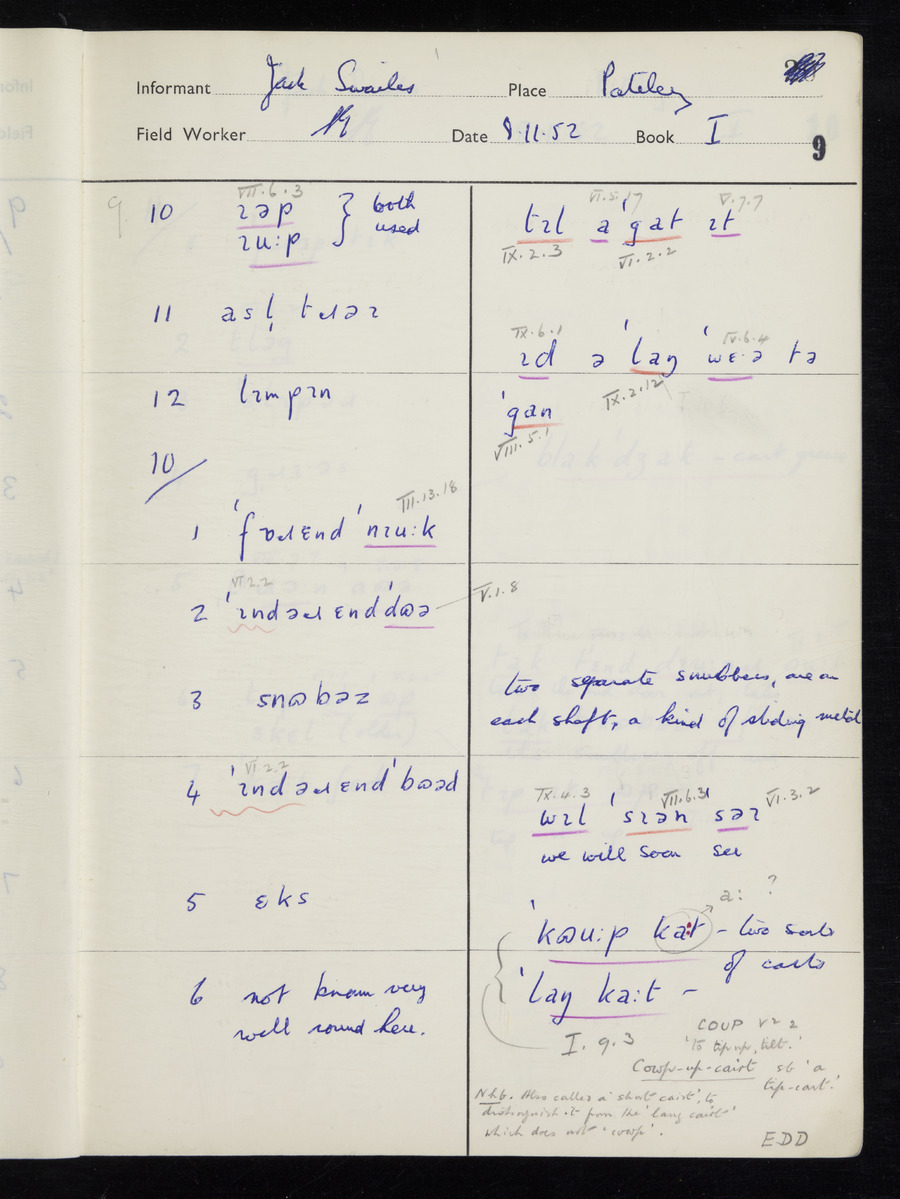 Informant Jack Swailes Place Pateley
Field Worker Date 8.11.52 Book I
9
9. 10 VII.6.3
ɪəp } both
ɪu:p used
11 asl̩ tɹəɪ
12 lɪmpɪn
10/
III.13.18
1 ˈfɒɹɛnd ˈnɪu:k
VI.2.2
2 ˈɪndəɹɛndˈdɷə V.1.8
3 snɷbəz
VI.2.2
4 ˈɪndəɹɛndˈbɷəd
5 ɛks
6 not known very
well round here.
VI.5.17 V.7.7
tɪl aˈgat ɪt
IX.2.3 VI.2.2
IX.6.1 IV.6.4
ɪd ə ˈlaŋ ˈwɛ·ə tə
IX.2.12
ˈgan
VIII.5.1
two separate snubbers, one on
each shaft, a kind of sliding metal
IX.4.3 VII.6.3 VI.3.2
wɪl ˈsɪən səɪ
we will soon see
a: ?
ˈkɷu:p ka:t – two sorts
of carts
ˈlaŋ ka:t –
I.9.3
COUP v² 2
'to tip up, tilt.'
Cowp-up-cairt sb 'a
tip-cart.'
N.b. Also called a 'short cairt', to
distinguish it from the 'lang cairt'
which does not 'cowp'.
EDD